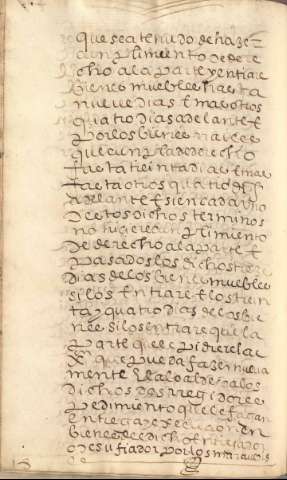 que sea tenudo de haze
cunplimiento de dere
cho a la parte y entiare
bienes muebles hasta
nueue dias e mas otros
quatro dias adelante e
por los bienes raizes
que cunpla de derecho
fasta treinta dias e mas
fasta otros quatro dias
adelante e si en cada vno
de estos dichos terminos
no fiziere cunplimiento
de derecho a la parte e
pasados los dichos treze
dias de los bienes muebles
si los entiare e los trein
ta y quatro dias de los bie
nes si los entiare que la
parte que le pidiere la
que pueda fazer nueua
mente e el alcalde a los
dichos corregidores
pedimiento que le fagan
entrega y execucion en
bienes de el dicho entiador
o de su fiador por los maravedis